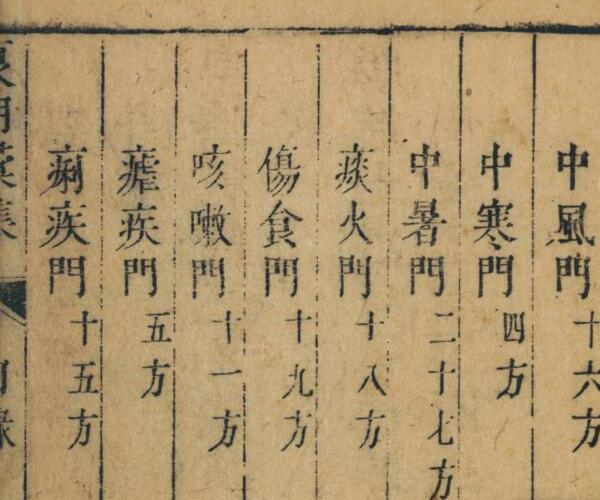 中風門十六方
中寒門四方
中暑門二十七方
痰火門十八方
傷食門十九方
咳嗽門十一方
瘧疾門五方
痢疾門十五方
目錄